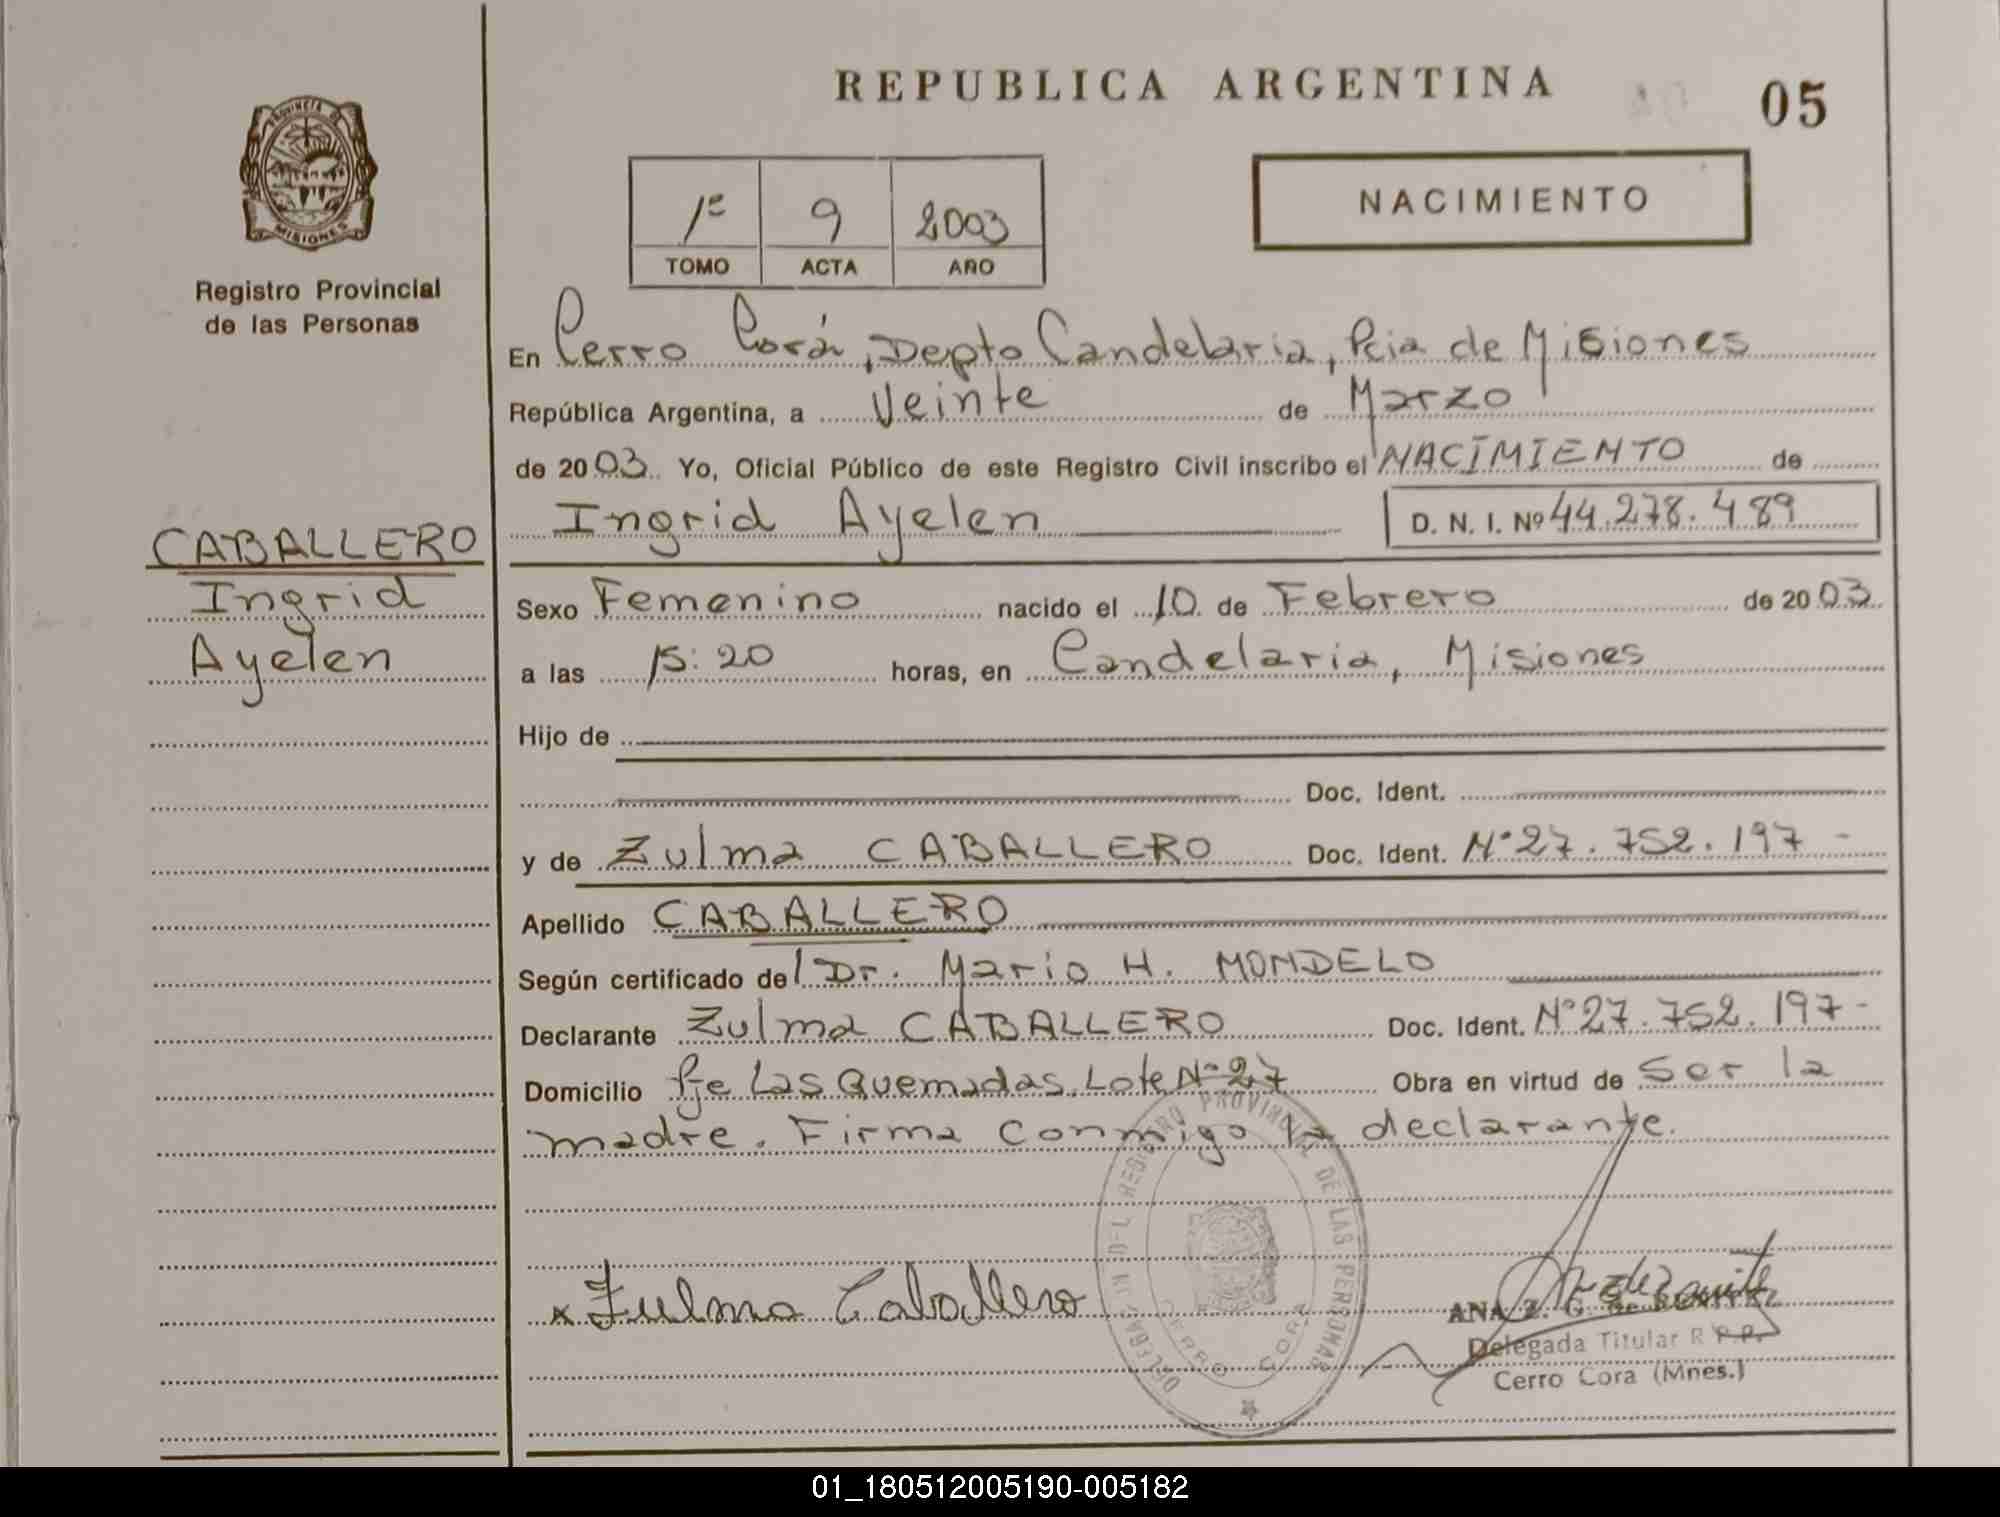 REPUBLICA ARGENTINA
05
PROVINCIA DE
MISIONES
Registro Provincial
de las Personas
1º 9 2003
TOMO ACTA AÑO
NACIMIENTO
En Cerro Corá, Depto Candelaria, Pcia de Misiones
República Argentina, a Veinte de Marzo
de 2003. Yo, Oficial Público de este Registro Civil inscribo el NACIMIENTO de
Ingrid Ayelen D. N. I. Nº 44.278.489
CABALLERO
Ingrid
Ayelen
Sexo Femenino nacido el 10 de Febrero de 2003.
a las 15:20 horas, en Candelaria, Misiones
Hijo de
Doc. Ident.
y de Zulma CABALLERO Doc. Ident. Nº 27.752.197-
Apellido CABALLERO
Según certificado del Dr. Mario H. MONDELO
Declarante Zulma CABALLERO Doc. Ident. Nº 27.752.197-
Domicilio Pje Las Quemadas, Lote Nº 27 Obra en virtud de Ser la
madre. Firma conmigo la declarante.
DELEGACION DEL REGISTRO PROVINCIAL DE LAS PERSONAS
CERRO CORA
x Zulma Caballero
ANA Z. G. de
Delegada Titular R.P.P.
Cerro Cora (Mnes.)
01_180512005190-005182